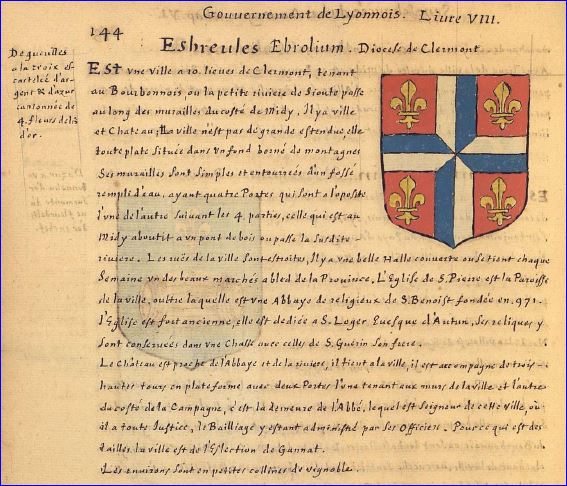 Gouuernement de Lyonnois. Liure VIII.
144
Esbreules Ebrolium. Diocese de Clermont
De gueulles
a la croix es-
cartelée d'ar-
gent & d'azur
cantonnée de
4. fleurs de lis
d'or.
EST vne ville a 10. lieues de Clermont, tenant
au Bourbonnois, ou la petite riviere de Sioule passe
au long des murailles du costé de Midy, Il y a ville
et Chateau, la ville n'est pas de grande estendue, elle
toute plate située dans vn fond borné de montagnes
Ses murailles sont simples et entourées d'un fossé
rempli d'au, ayant quatre Portes qui sont a l'oposite
l'vne de l'autre suivant les 4. parties, celle qui est au
Midy aboutit a vn pont de bois ou passe la susdite
riviere. Les ruës de la ville sont estroites, Il y a vne belle Halle couuerte ou se tient chaque
Semaine vn des beaux marchés a bled de la Prouince. L'Eglise de S. Pierre est la Paroisse
de la ville, oultre laquelle est vne Abbaye de religieux de S. Benoist fondée en 971.
l'Eglise est fort ancienne, elle est dediée a S. Leger Euesque d'Autun, ses reliques y
sont conseruées dans vne Chasse auec celles de S. Guérin son frere.
Le Château est proche de l'Abbaye et de la riviere, il tient a la ville, il est accompagné de trois
hautes tours en plateforme auec deux Portes l'une tenant aux murs de la ville et l'autre
du costé de la Campagne, c'est la demeure de l'Abbé, lequel est Seigneur de cette ville, où
il a toute Justice, le Bailliage y estant administré par ses Officiers. Pour ce qui est des
tailles la ville est de l'Eslection de Gannat.
Les enuirons sont en petites collines de vignoble.